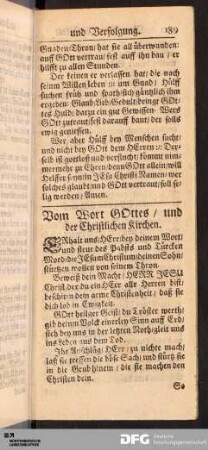 und Verfolgung. 189
Gnaden Thron/ hat sie all überwunden:
auff GOtt vertrau/ fest auff ihn bau/ er
hilfft zu allen Stunden.
Der keinen er verlassen hat/ die nach
seinem Willen leben/ um Gnad/ Hülff
suchen früh und spath/ sich gäntzlich ihm
ergeben: Glaub/ Lieb/ Gedult bringt GOt-
tes Huld/ darzu ein gut Gewissen: Wers
GOtt zutraut/ fest darauff baut/ der solls
ewig geniessen.
Wer aber Hülff bey Menschen sucht/
und nicht bey GOtt dem HErren/ Der-
selb ist gottloß und verflucht/ kommt nim-
mermehr zu Ehren/ denn GOtt allein will
Helffer seyn/ in JEsu Christi Namen/ wer
solches glaubt und GOtt vertraut/ soll se-
lig werden/ Amen.
Vom Wort GOttes/ und
der Christlichen Kirchen.
ERhalt uns HErr bey deinem Wort/
und steur des Pabsts und Türcken
Mord/ die JEsum Christum deinen Sohn/
stürtzen wollen von seinem Thron.
Beweiß dein Macht/ HERR JESU
Christ/ der du ein HErr aller Herren bist/
beschirm dein arme Christenheit/ daß sie
dich lob in Ewigkeit.
GOtt heiliger Geist/ du Tröster werth/
gib deinm Volck einerley Sinn auff Erd/
steh bey uns in der letzten Noth/ gleit uns
ins Leben aus dem Tod.
Ihr Anschläg/ HErr/ zu nichte mach/
laß sie treffen die böse Sach/ und stürtz sie
in die Grub hinein/ die sie machen den
Christen dein.
So
DFG Deutsche
Forschungsgemeinschaft